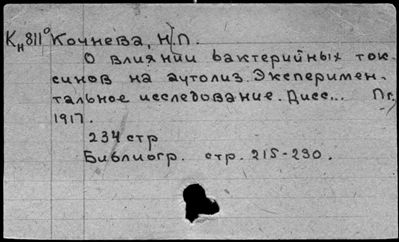 Кн 811° Кочнева, Н.П.
О влиянии бактерийных ток-
синов на аутолиз. Эксперимен-
тальное исследование. Дисс... Пг,
1917.
234 стр
Библиогр. стр. 215-230.